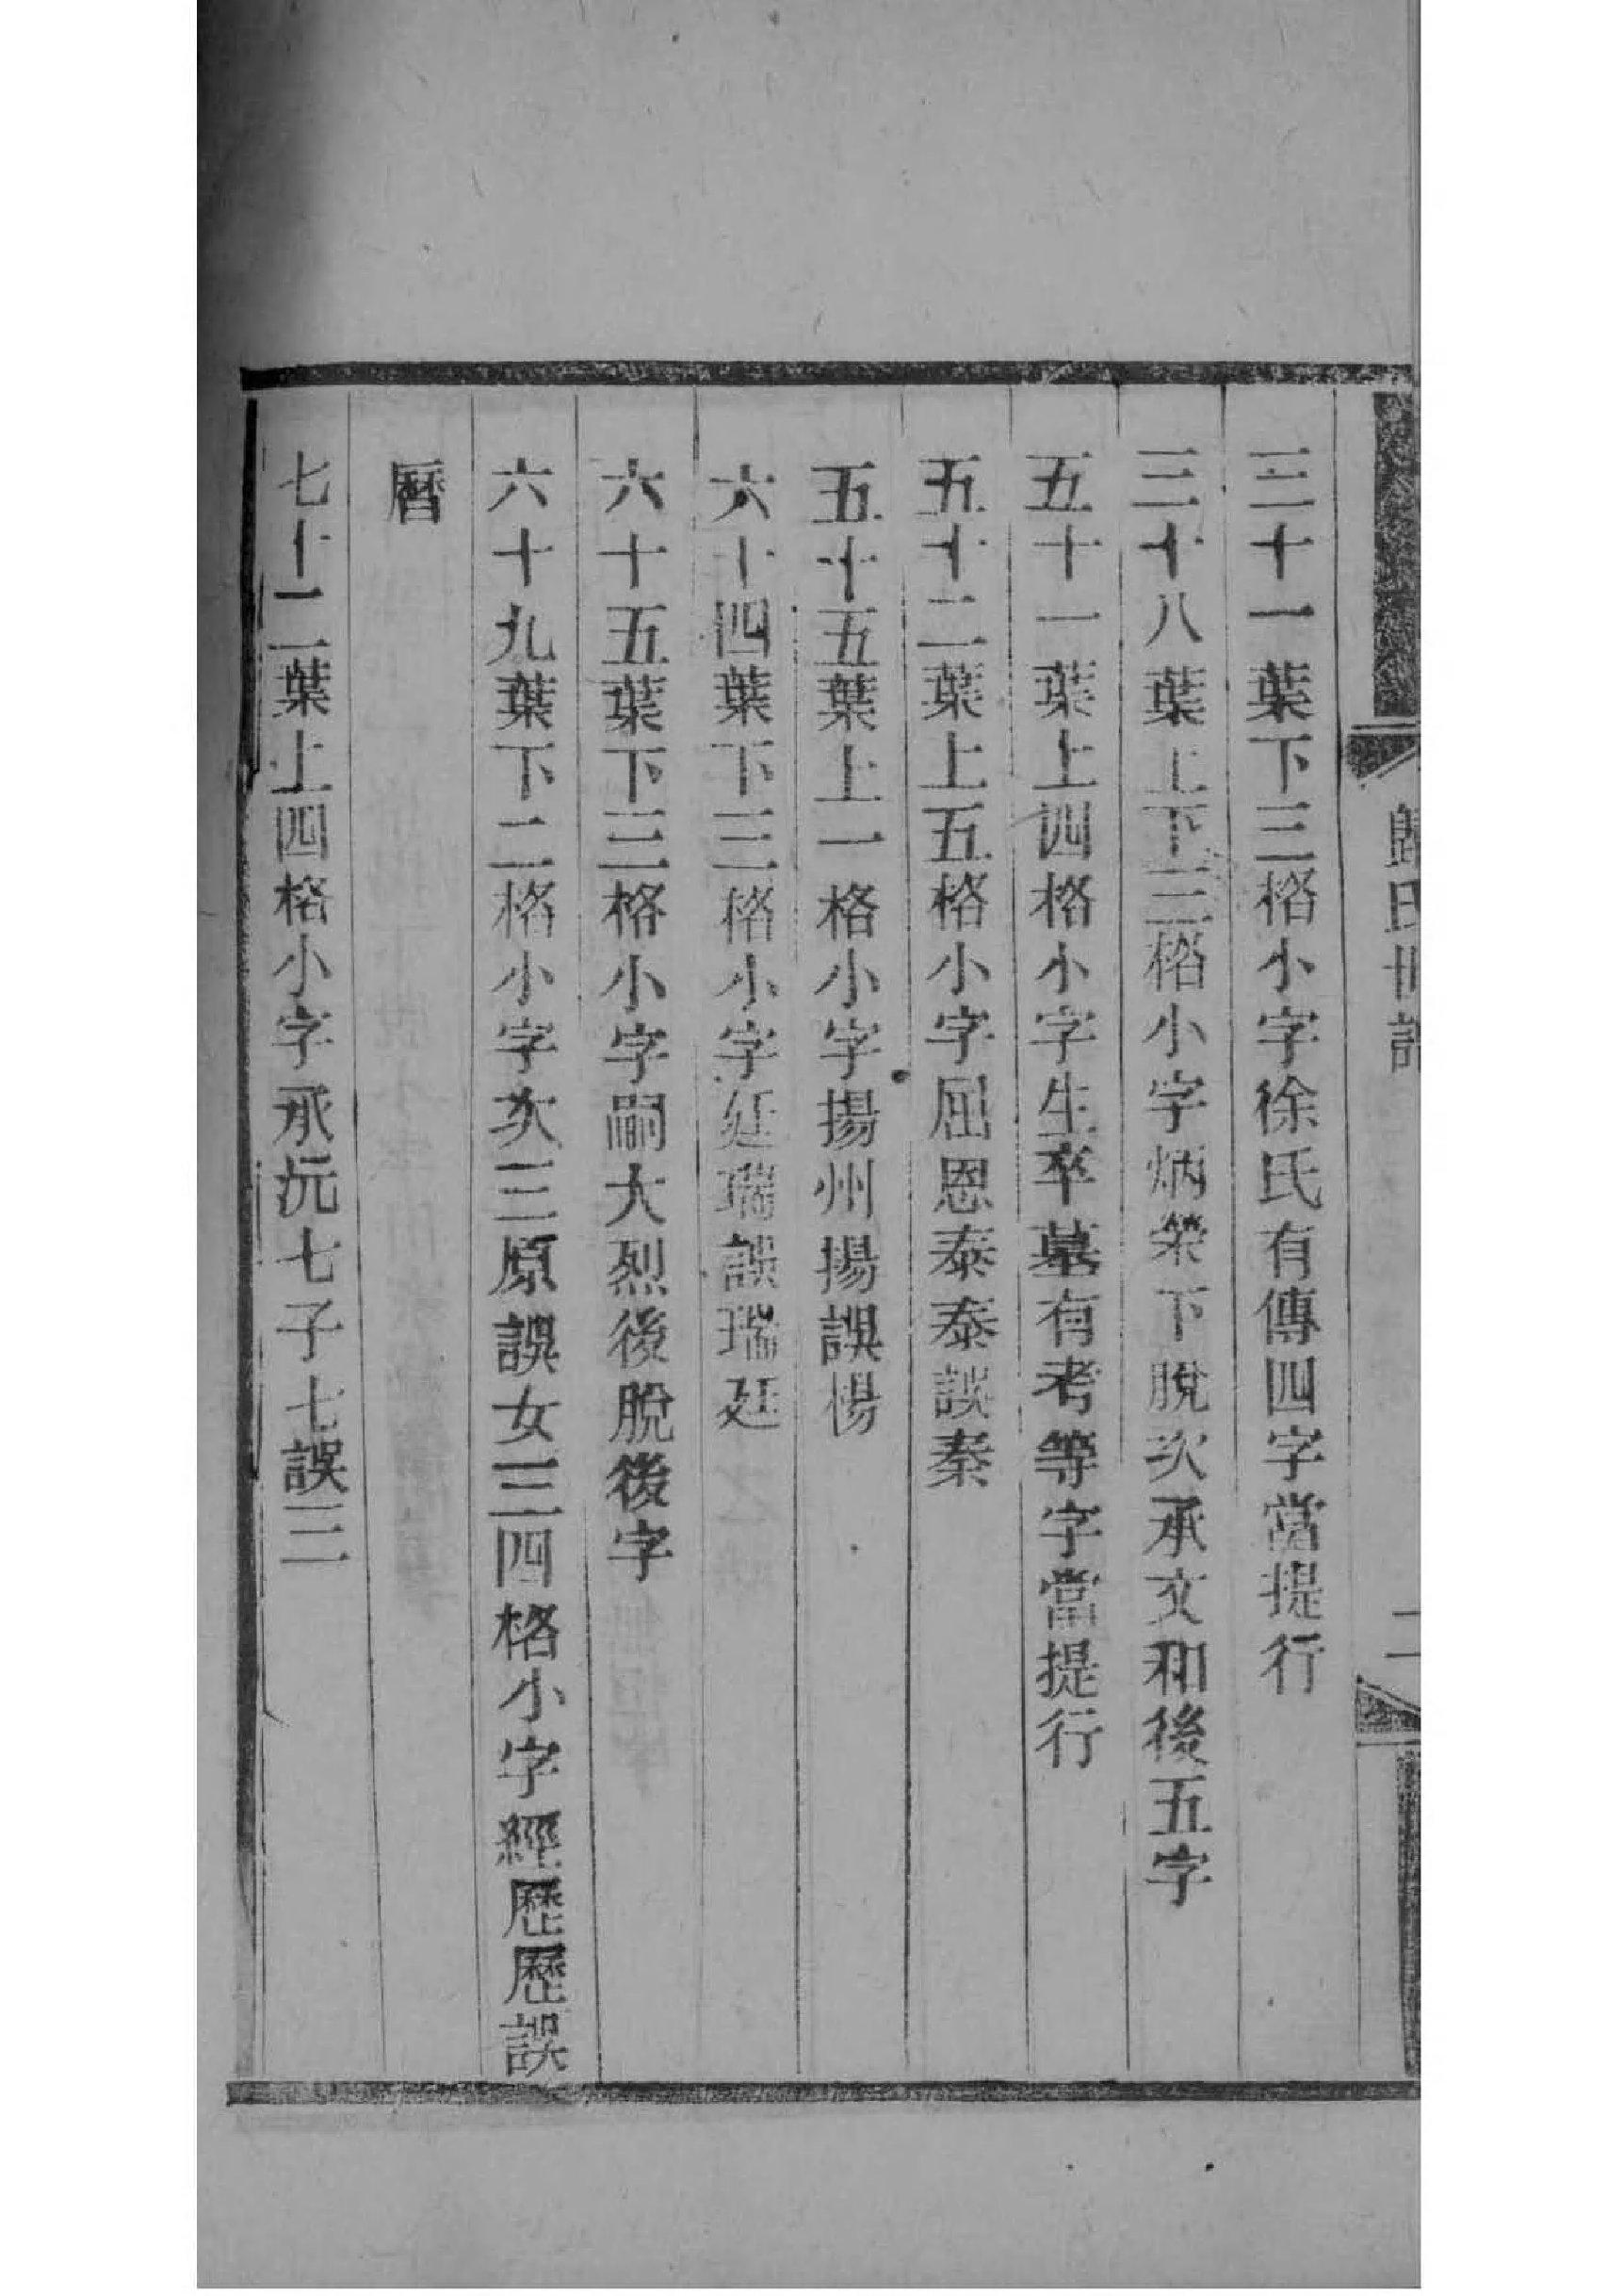 歸氏世譜
二
三十一葉下三格小字徐氏有傳四字當提行
三十八葉上下三格小字炳榮下脫次承文和後五字
五十一葉上四格小字生卒墓有考等字當提行
五十二葉上五格小字屈恩泰泰誤秦
五十五葉上一格小字揚州揚誤楊
六十四葉下三格小字廷瑞誤瑞廷
六十五葉下三格小字嗣大烈後脫後字
六十九葉下二格小字次三原誤女三四格小字經歷歷誤
曆
七十二葉上四格小字承沅七子七誤三